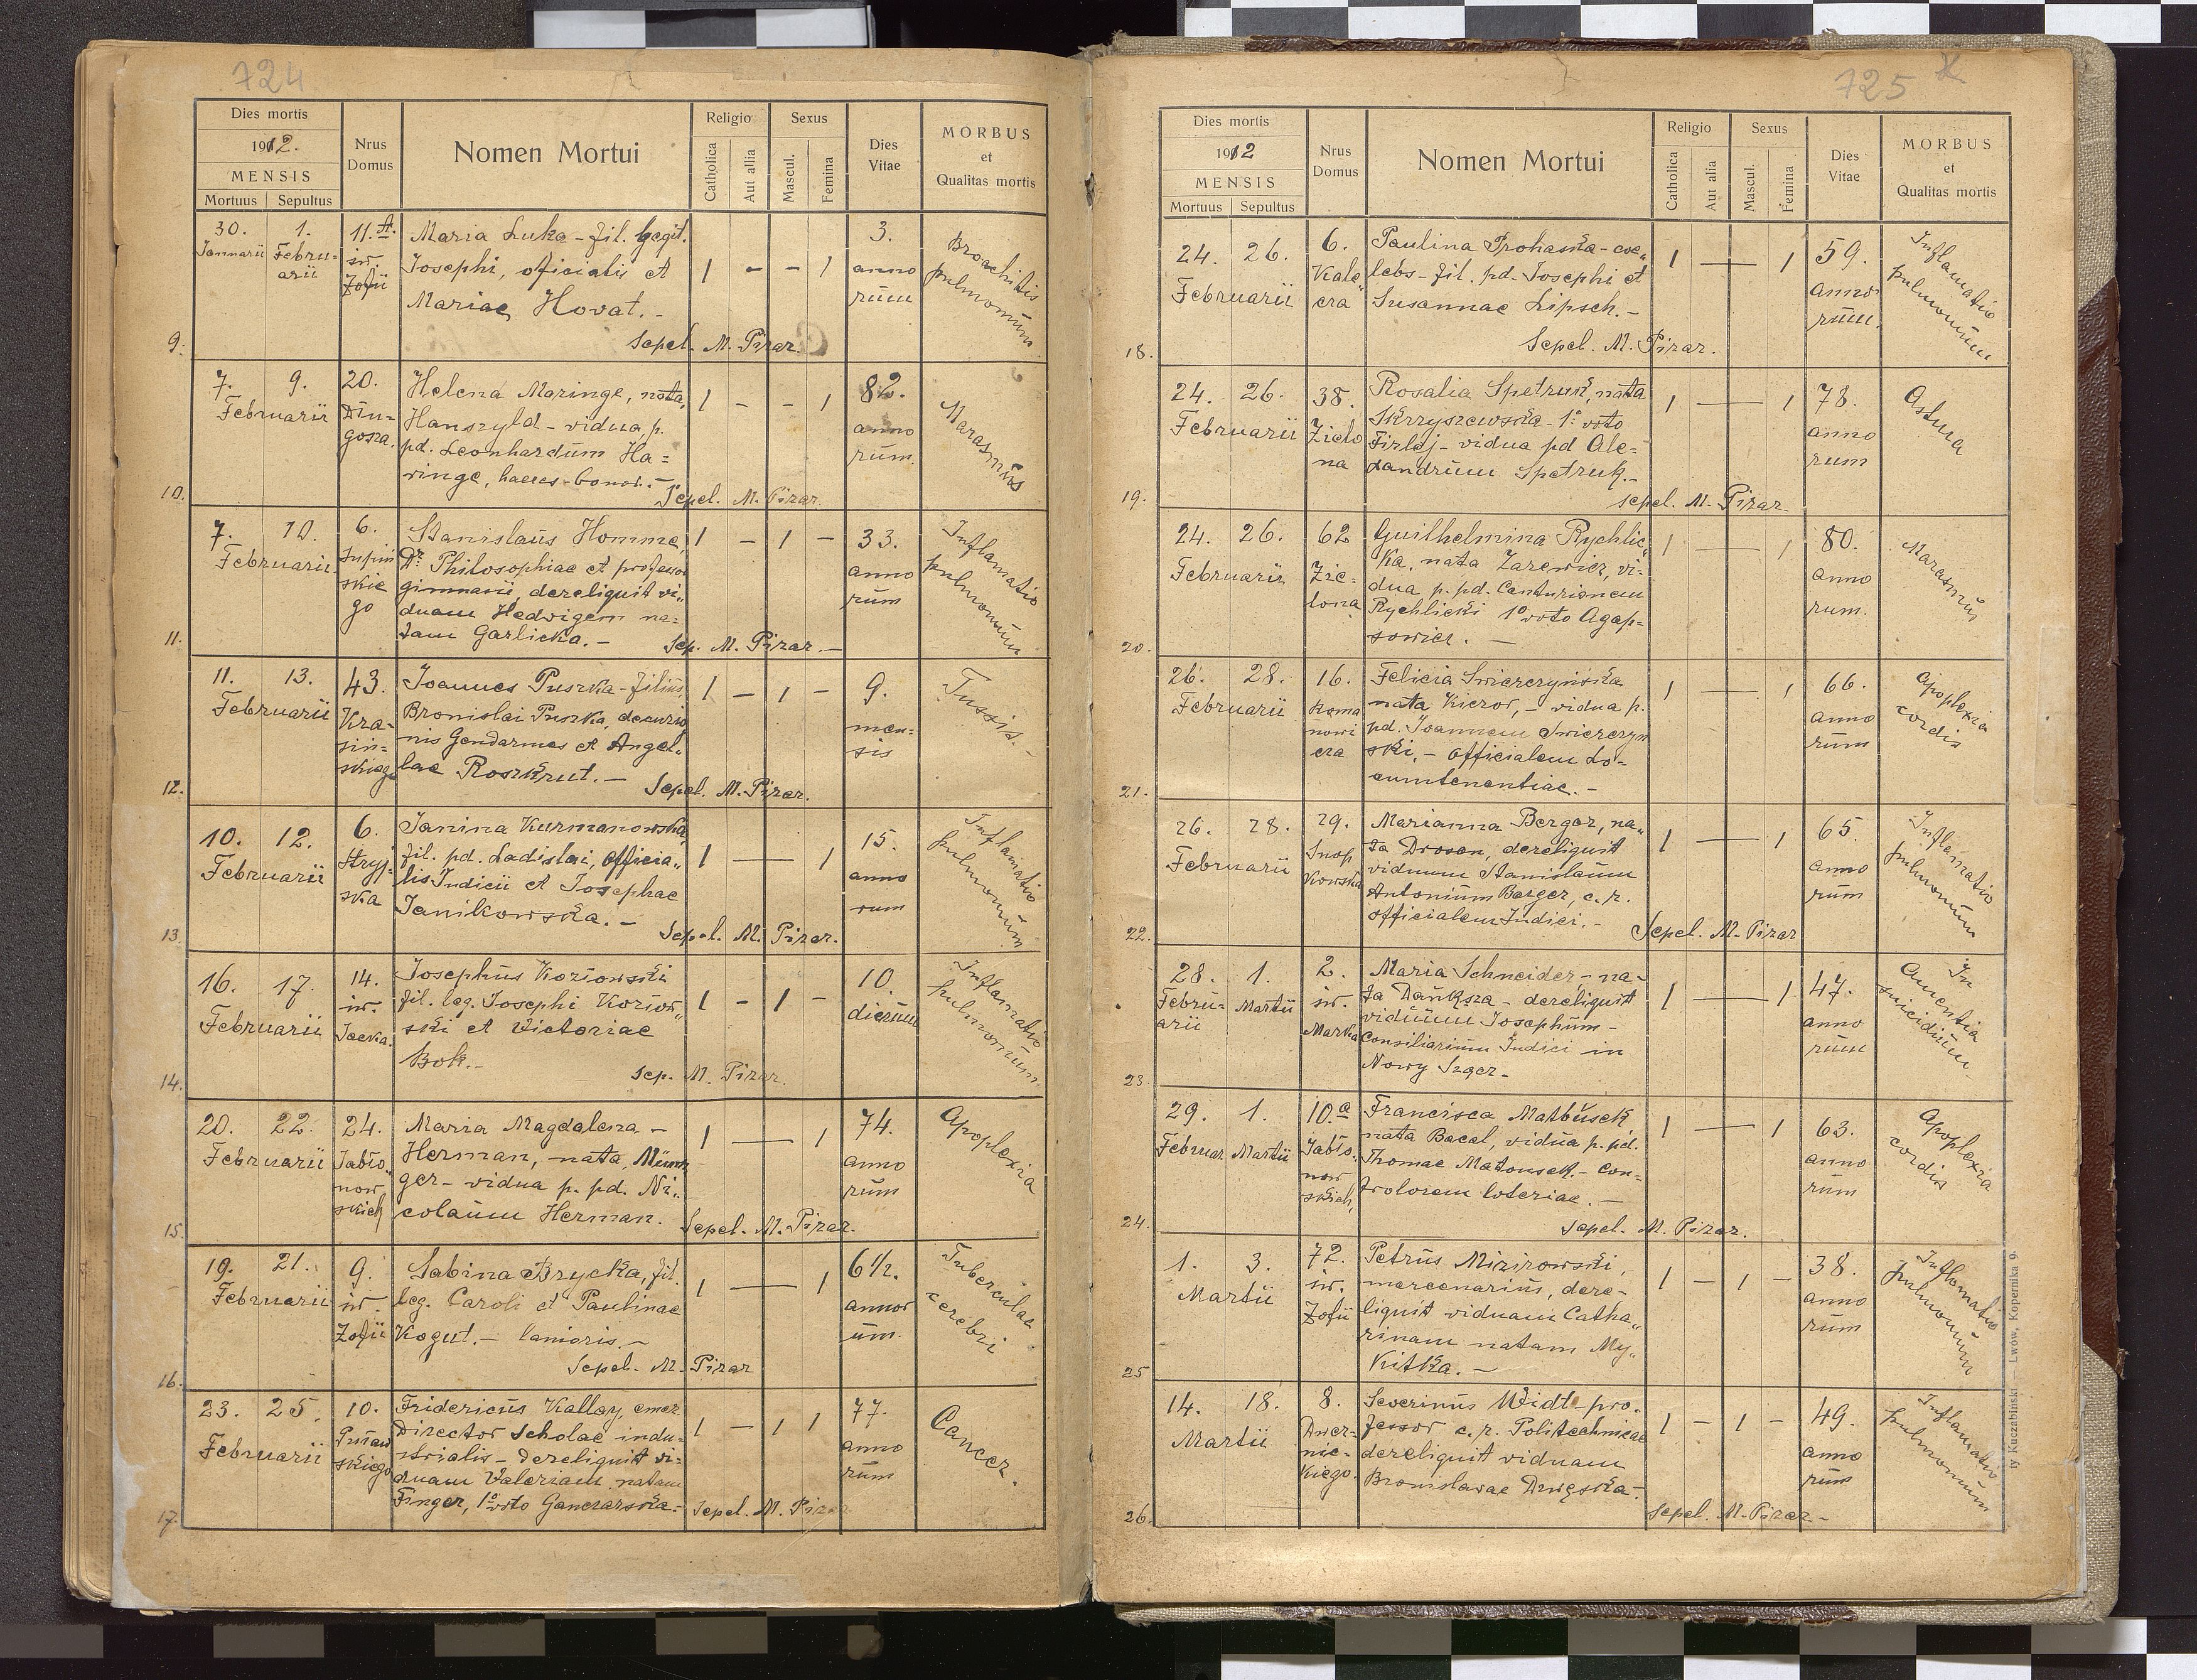 724
Dies mortis
1912.
MENSIS
Mortuus Sepultus
Nrus Domus
Nomen Mortui
Religio
Catholica
Aut allia
Sexus
Mascul.
Femina
Dies Vitae
MORBUS
et
Qualitas mortis
9.
30. Januarii
1. Februarii
11. A św. Zofii
Maria Luka - fil. legit.
Josephi, officialis et
Mariae Hovat. -
Sepel. M. Pizar.
1 - - 1
3. annorum
Bronchitis pulmonum
10.
7. 9. Februarii
20. Długosza.
Helena Maringe, nata
Hanszyld - vidua p.
pd. Leonhardum Ha=
ringe, haeres bonor. -
Sepel. M. Pizar
1 - - 1
82. annorum.
Marasmus
11.
7. 10. Februarii
6. Supińskiego
Stanislaus Homme,
Dr. Philosophiae et professor
gimnasii, dereliquit vi„
duam Hedvigem na=
tam Garlicka. -
Sep. M. Pizar. -
1 - 1 -
33. annorum
Inflamatio pulmonum
12.
11. 13. Februarii
43. Krasinskiego
Joannes Puszka - filius
Bronislai Puszka, decurio
nis Gendarmes et Angel„
lae Roszkrut. -
Sepel. M. Pizar.
1 - 1 -
9. mensis
Tussis. -
13.
10. 12. Februarii
6. Stryjska
Janina Kurmanowska,
fil. pd. Ladislai, officia„
lis Judicii et Josephae
Janikowska. -
Sepel. M. Pizar.
1 — 1
15. annorum
Inflamatio pulmonum
14.
16. 17. Februarii
14. św. Jacka.
Josephus Koziowski
fil. leg. Josephi Koziow„
ski et Victoriae
Bok. -
Sep. M. Pizar.
1 - 1 -
10. dierum
Inflamatio pulmonum.
15.
20. 22. Februarii
24. Jabłonowskich
Maria Magdalena -
Herman, - nata Münn
ger - vidua p. pd. Ni„
colaum Herman.
Sepel. M. Pizar.
1 — 1
74. annorum
Apoplexia
16.
19. 21. Februarii
9. św. Zofii
Sabina Brycka, fil.
leg. Caroli et Paulinae
Kogut. - lanioris. -
Sepel. M. Pizar
1 — 1
6 1/2. annorum.
Tuberculae cerebri
17.
23. 25. Februarii
10. Pułaskiego
Fridericus Kallay, emer.
Director Scholae indu=
strialis - dereliquit vi=
duam Valeriam natam
Finger, 1o voto Ganczarska. -
Sepel. M. Pizar
1 - 1 1
77. annorum
Cancer.
725
Dies mortis
1912
MENSIS
Mortuus Sepultus
Nrus Domus
Nomen Mortui
Religio
Catholica
Aut alia
Sexus
Mascul.
Femina
Dies Vitae
MORBUS
et
Qualitas mortis
18.
24. 26. Februarii
6. Kalecza
Paulina Prohaska - coe„
lebs - fil. pd. Josephi et
Susannae Lipsch. -
Sepel. M. Pizar.
1 — 1
59. annorum.
Inflamatio pulmonum
19.
24. 26. Februarii
38. Zielona
Rosalia Spetruk, nata
Skrzyszewska - 1o voto
Firlej - vidua pd Ale=
xandrum Spetruk. -
Sepel. M. Pizar.
1 — 1
78. annorum
Astma
20.
24. 26. Februarii
62 Zielona
Guilhelmina Rychlic„
ka, nata Zarewicz, vi=
dua p. pd. Centurionem
Rychlicki 1o voto Agap=
sowicz. -
1 — 1
80. annorum.
Marasmus
21.
26. 28. Februarii
16. Romanowicza
Felicia Swierczyńska
nata Kiezor, - vidua p.
pd. Joannem Swierczyn
ski, - officialem Lo-
cumtenentiae. -
1 — 1
66. annorum
Apoplexia cordis
22.
26. 28. Februarii
29. Snopkowska
Marianna Berger, na„
ta Drosen, dereliquit
viduum Stanislaum
Antonium Berger, c. r.
officialem Judici. -
Sepel. M. Pizar
1 — 1
65. annorum
Inflamatio pulmonum
23.
28. Februarii
1. Martii
2. św. Marka
Maria Schneider, - na-
ta Danksza - dereliquit
viduum Josephum -
Consiliarium Judici in
Nowy Sącz -
1 — 1
47. annorum
In Amentia suicidium
24.
29. Februar
1. Martii
10a Jabłonowskich,
Francisca Matoušek
nata Bacal, vidua p. pd.
Thomae Matousek - Con=
trolorem loteriae. -
Sepel. M. Pizar.
1 — 1
63. annorum
Apoplexia cordis
25
1. 3. Martii
72. św. Zofii
Petrus Mizirowski,
mercenarius, dere-
liquit viduam Catha„
rinam natam My„
kitka. -
1 - 1 -
38. annorum
Inflamatio pulmonum
26.
14. 18. Martii
8. Dwernickiego.
Severinus Widt - pro-
fessor c. r. Politechnicae
dereliquit viduam
Bronislavae Dwęska -
Sepel. M. Pizar -
1 - 1 -
49. annorum
Inflamatio pulmonum
Kuczabiński — Lwów, Kopernika 9.